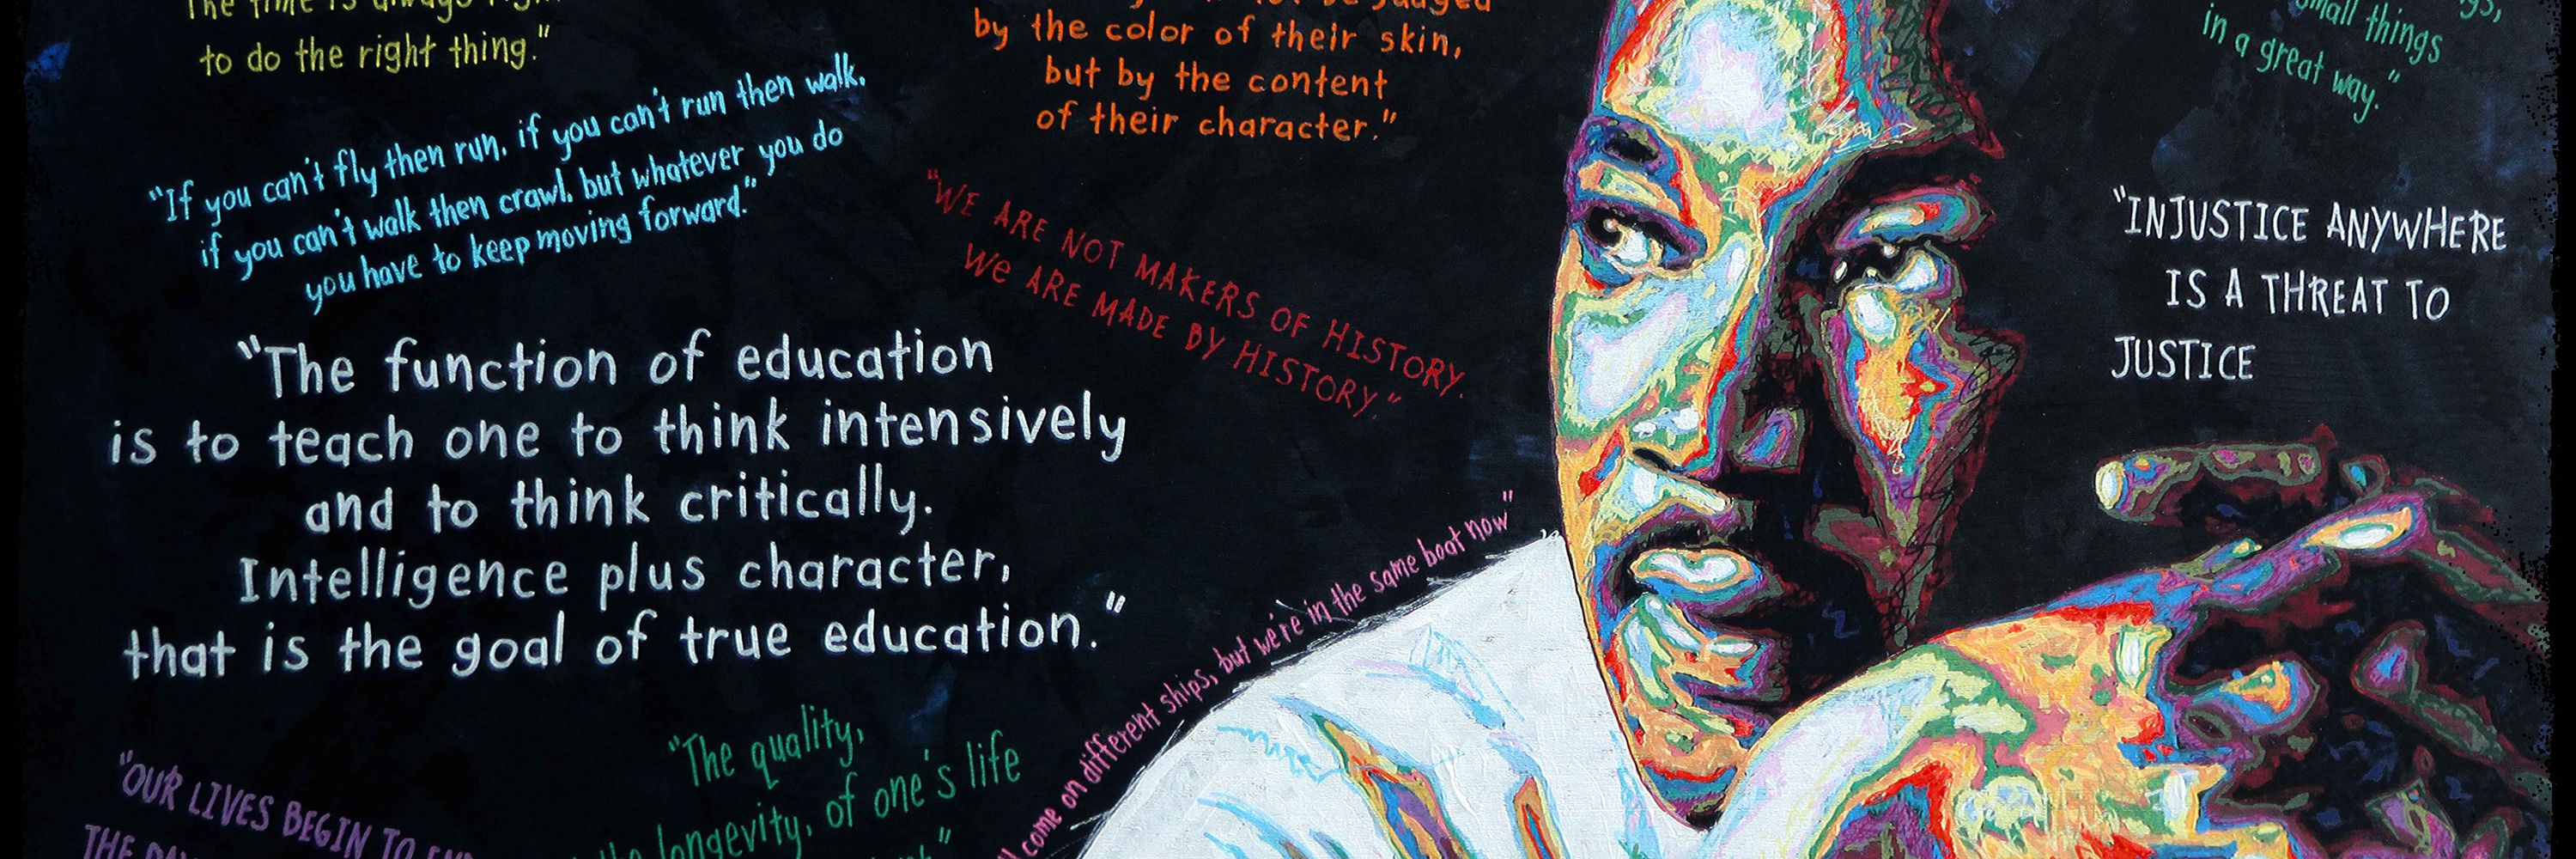 The time is always right
to do the right thing."
"If you can't fly then run, if you can't run then walk,
if you can't walk then crawl, but whatever you do
you have to keep moving forward."
"The function of education
is to teach one to think intensively
and to think critically.
Intelligence plus character,
that is the goal of true education."
"OUR LIVES BEGIN TO
THE
"The quality,
longevity, of one's life
be judged
by the color of their skin,
but by the content
of their character."
"WE ARE NOT MAKERS OF HISTORY.
We ARE MADE BY HISTORY."
come on different ships, but we're in the same boat now"
small things
in a great way."
"INJUSTICE ANYWHERE
IS A THREAT TO
JUSTICE